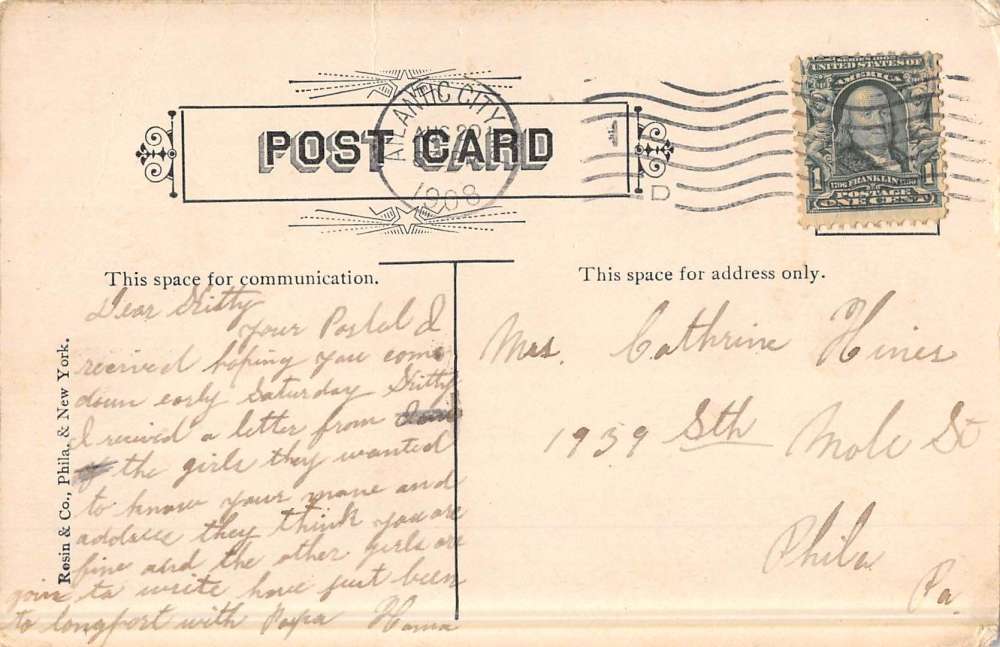 POST CARD
ATLANTIC CITY
AUG 20
1908
D
SERIES 1902
UNITED STATES OF
AMERICA
1706 FRANKLIN 1790
POSTAGE
1 ONE CENT 1
This space for communication.
This space for address only.
Rosin & Co., Phila. & New York.
Dear Kitty
your Postal I
received hoping you come
down early Saturday Kitty
I recived a letter from
of the girls they wanted
to know your mane and
address they think you are
fine and the other girls are
goin to write have just been
to longport with Papa
Mrs. Cathrine Hines
1939 Sth Mole St
Phila
Pa.